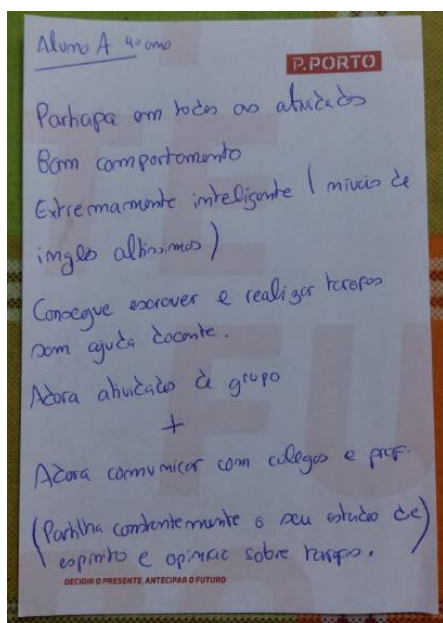 Aluno A 4º ano
P.PORTO
Participa em todas as atividades
Bom comportamento
Extremamente inteligente ( níveis de
inglês altíssimos )
Consegue escrever e realizar tarefas
sem ajuda docente.
Adora atividades de grupo
+
Adora comunicar com colegas e prof.
(Partilha constantemente o seu estado de)
espírito e opinião sobre tarefas.
DECIDIR O PRESENTE, ANTECIPAR O FUTURO